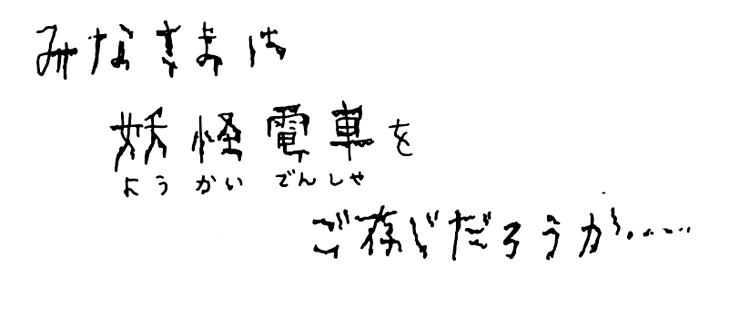 みなさまは
妖怪電車を
ようかいでんしゃ
ご存じだろうか……